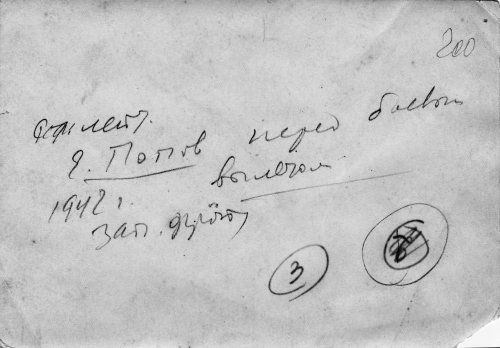 200
лейт.
Попов перед боевым
вылетом
1942 г.
зап. фронт
3